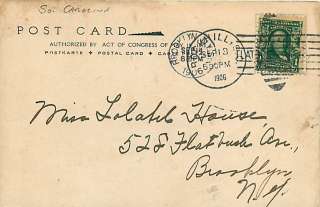 So. Carolina
POST CARD
AUTHORIZED BY ACT OF CONGRESS OF
POSTKARTE • POSTAL CARD • CA
BROOKLYN
1906 5 30 PM
1906
Miss Lolabel House,
528 Flatbush Av.,
Brooklyn
N.Y.